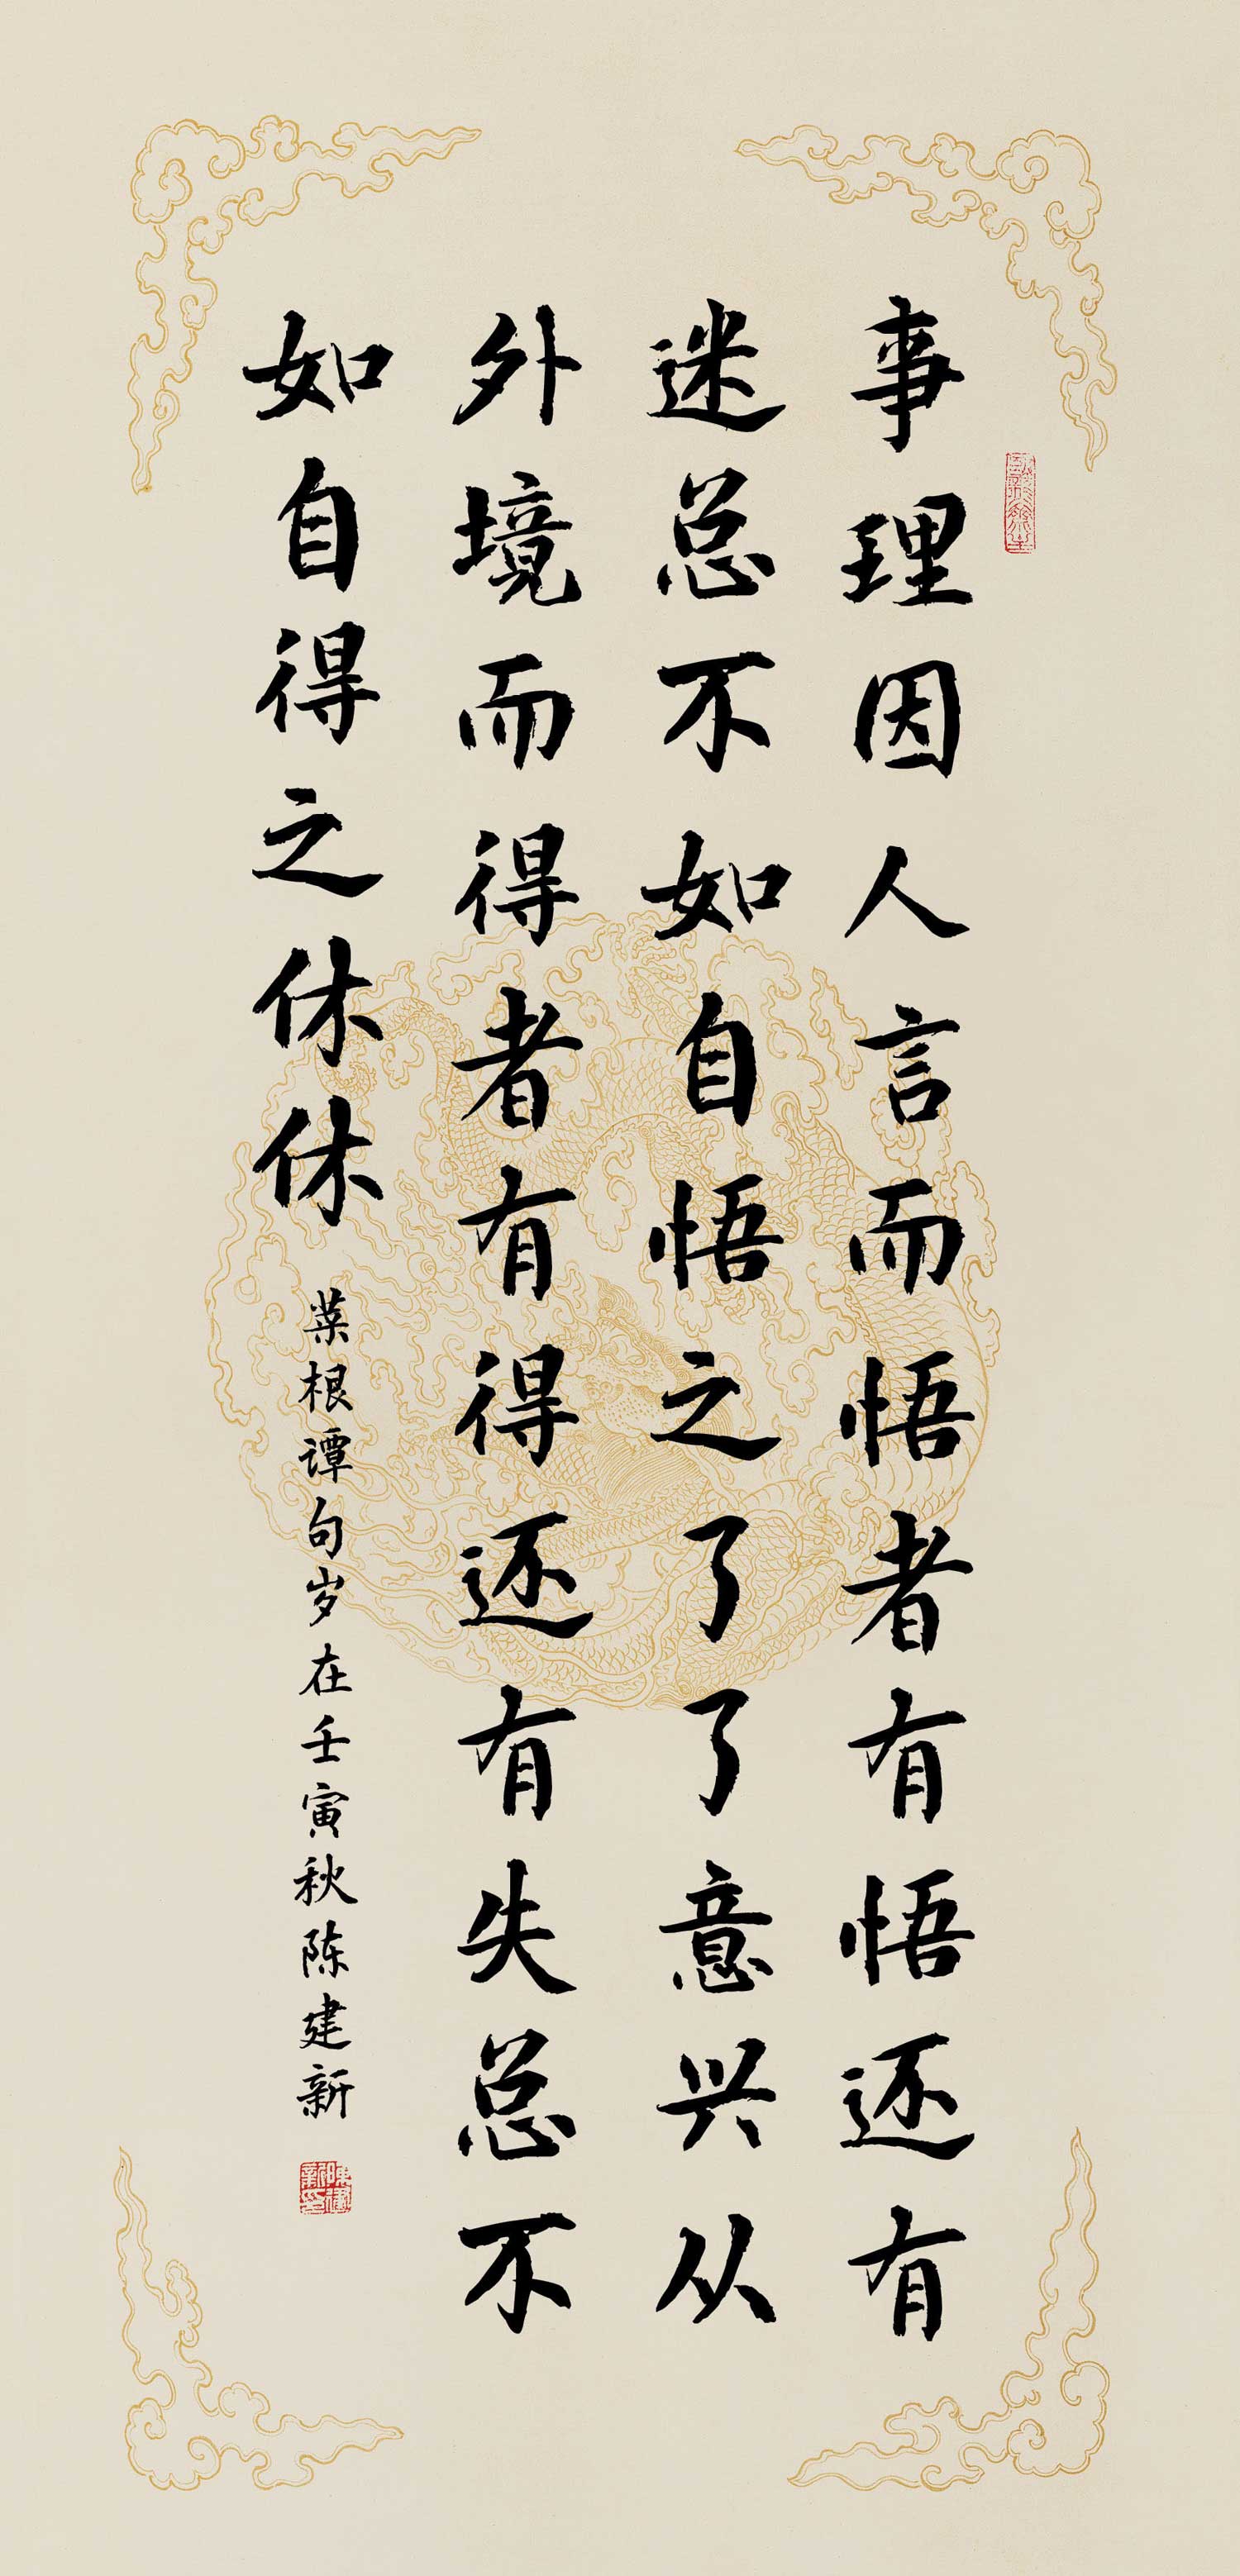 事理因人言而悟者有悟还有
迷总不如自悟之了了意兴从
外境而得者有得还有失总不
如自得之休休
菜根谭句岁在壬寅秋陈建新